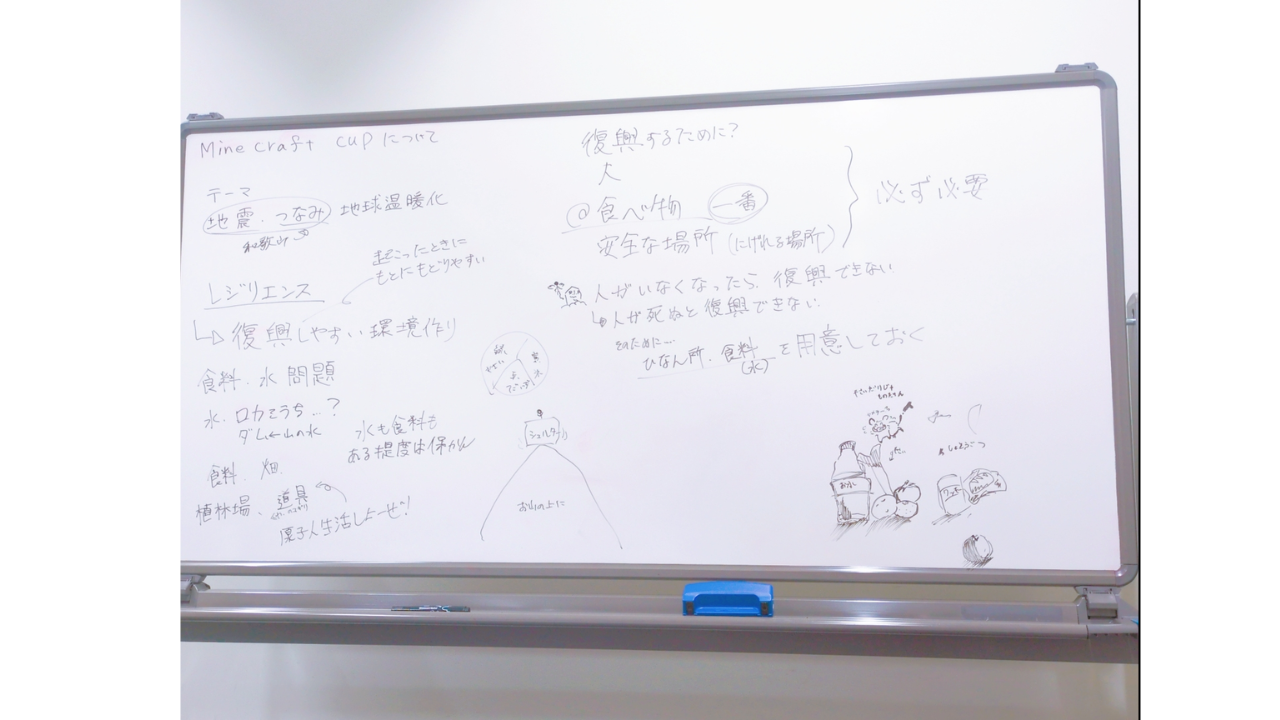 Minecraft cupについて
テーマ
地震・つなみ 地球温暖化
和歌山
起こったときに
もとにもどりやすい
レジリエンス
復興しやすい環境作り
食料・水 問題
水・ロカそうち…?
ダム←山の水
水も食料も
ある程度は保かん
食料・畑
植林場、道具
原子人生活しよーぜ!
シェルター
お山の上に
復興するために?
人
◎食べ物 一番
安全な場所(にげれる場所)
必ず必要
人がいなくなったら、復興できない
↳人が死ぬと復興できない
そのために…
ひなん所・食料(水)を用意しておく